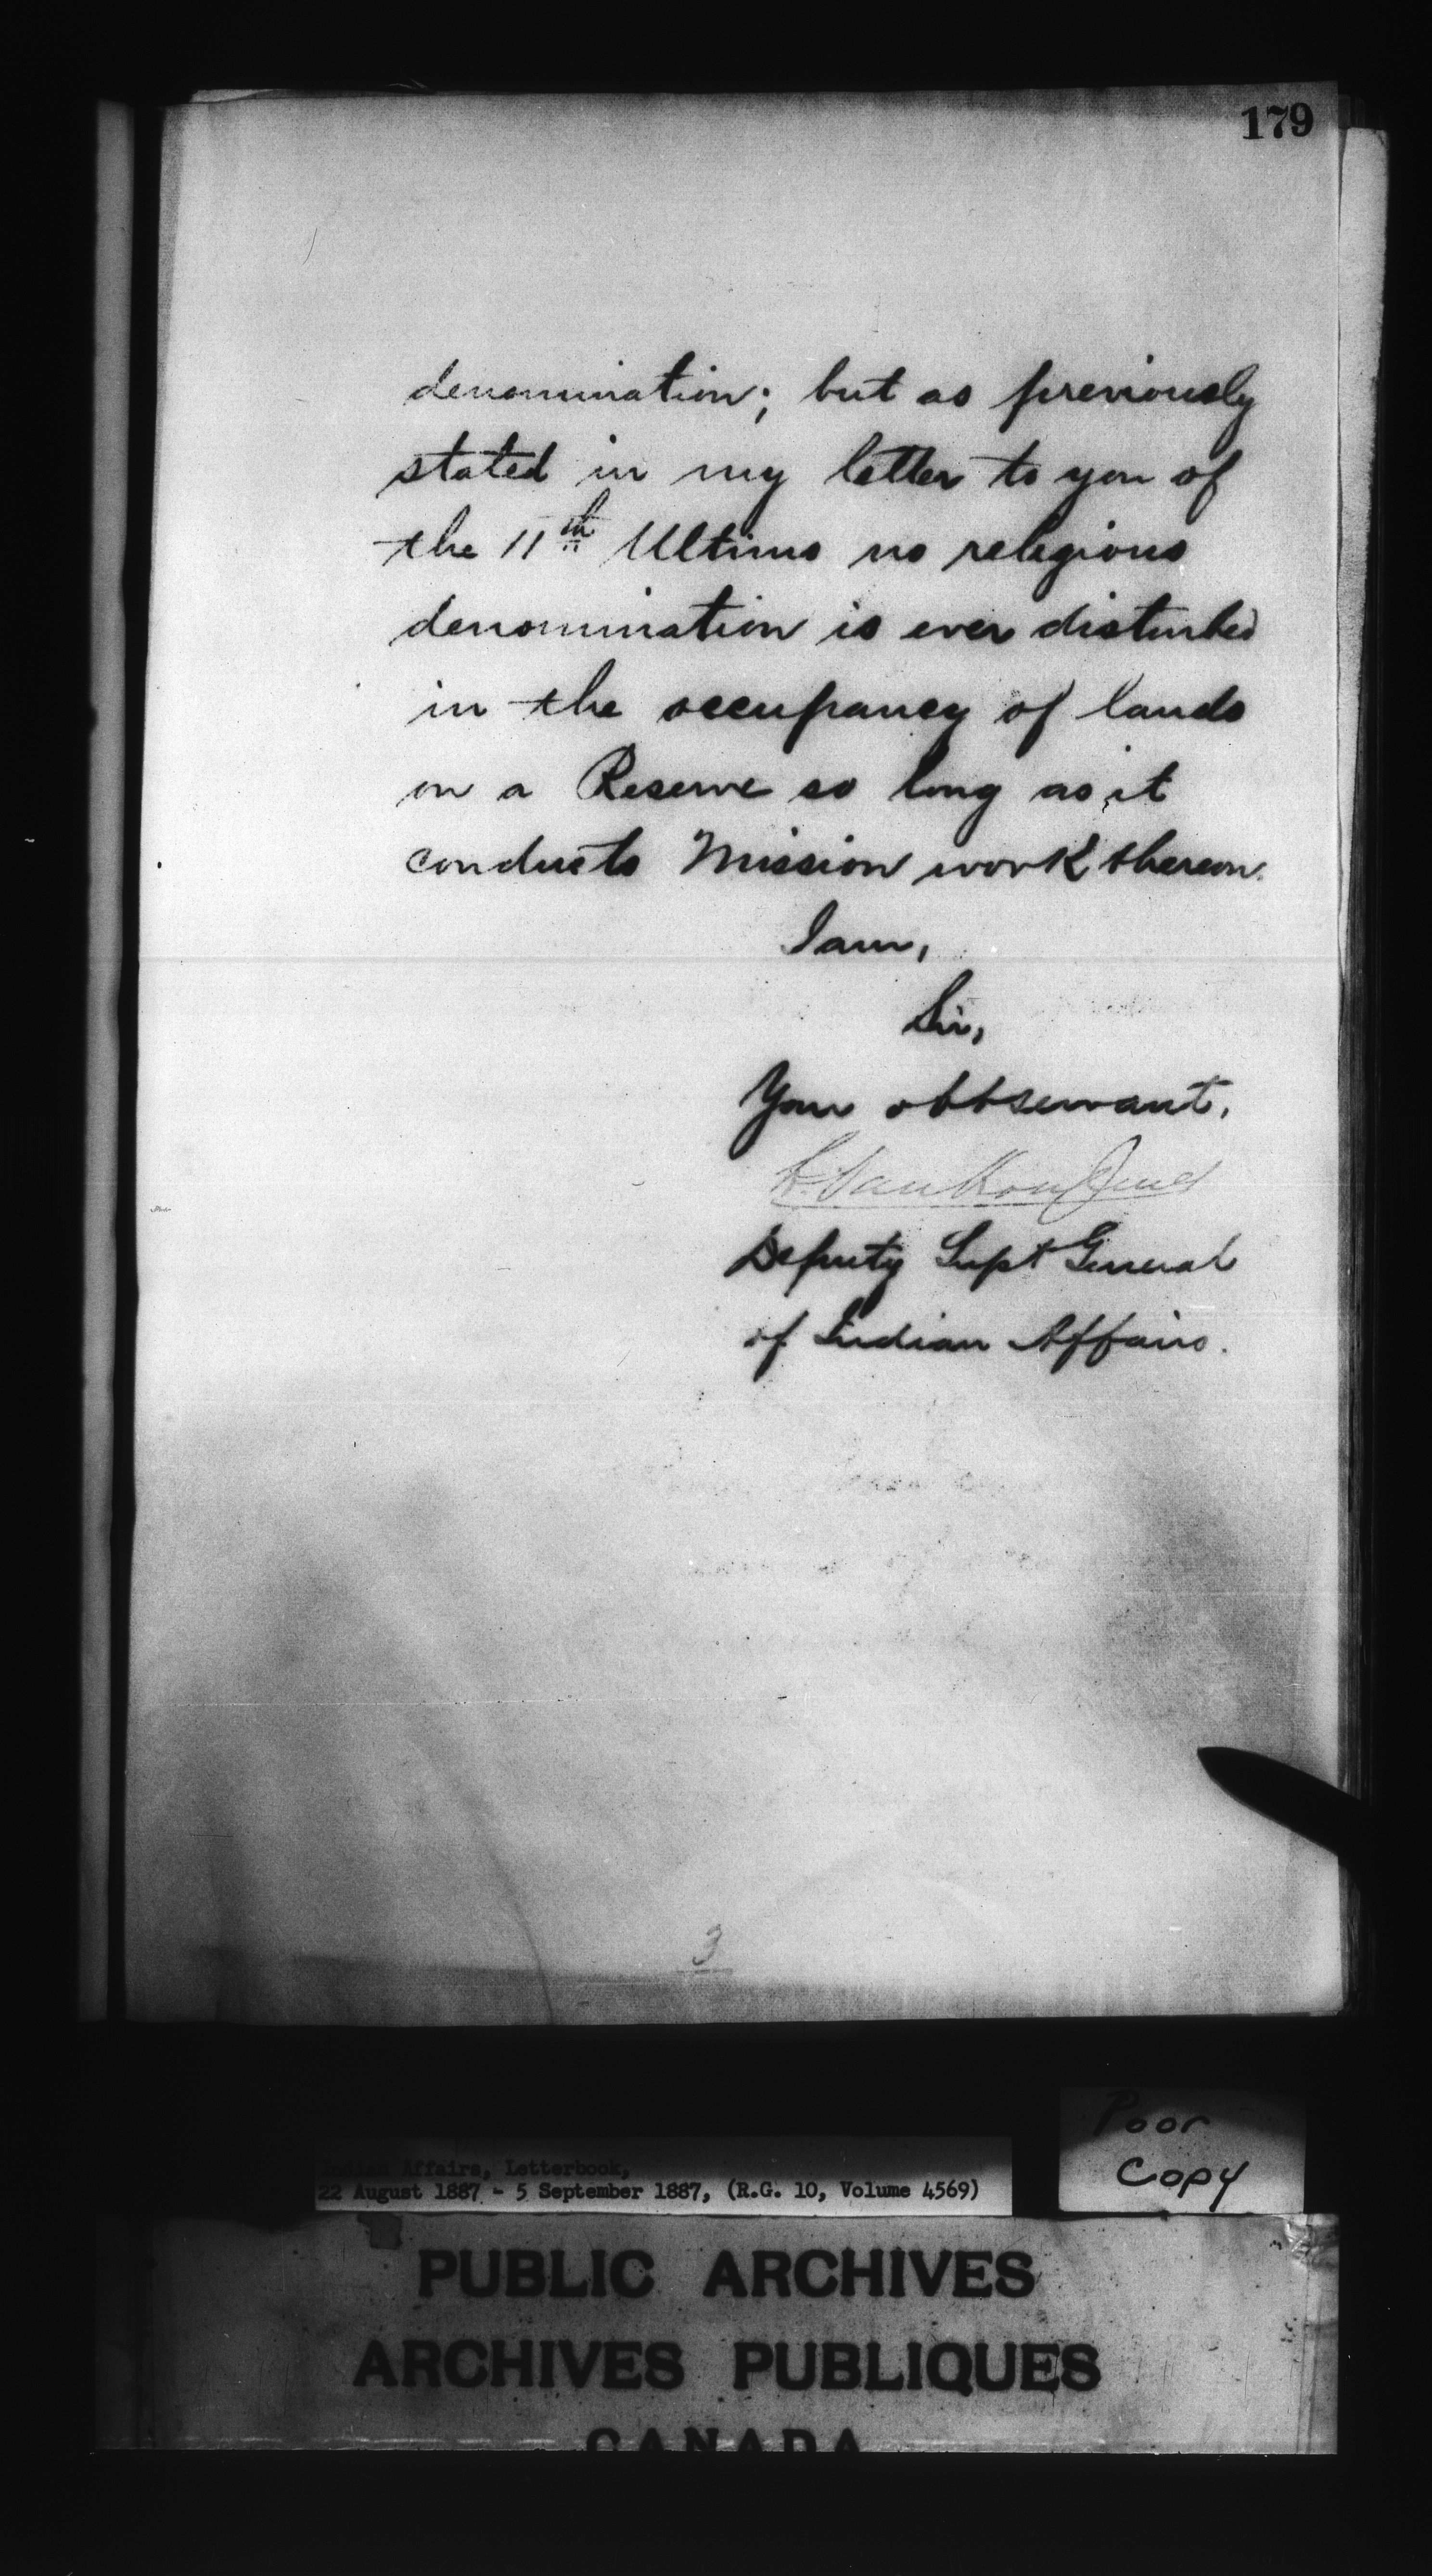 179
denomination; but as previously
stated in my letter to you of
the 11th Ultimo no religious
denomination is ever disturbed
in the occupancy of lands
on a Reserve so long as it
conducts Mission work thereon.
I am,
Sir,
Your obt servant,
L. VanKoughnet
Deputy Supt General
of Indian Affairs.
3
Poor
Copy
Indian Affairs, Letterbook,
22 August 1887 - 5 September 1887, (R.G. 10, Volume 4569)
PUBLIC ARCHIVES
ARCHIVES PUBLIQUES
CANADA